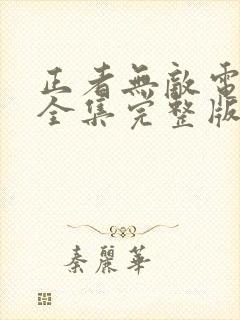 正者無敵電
全集完整版
秦麗華